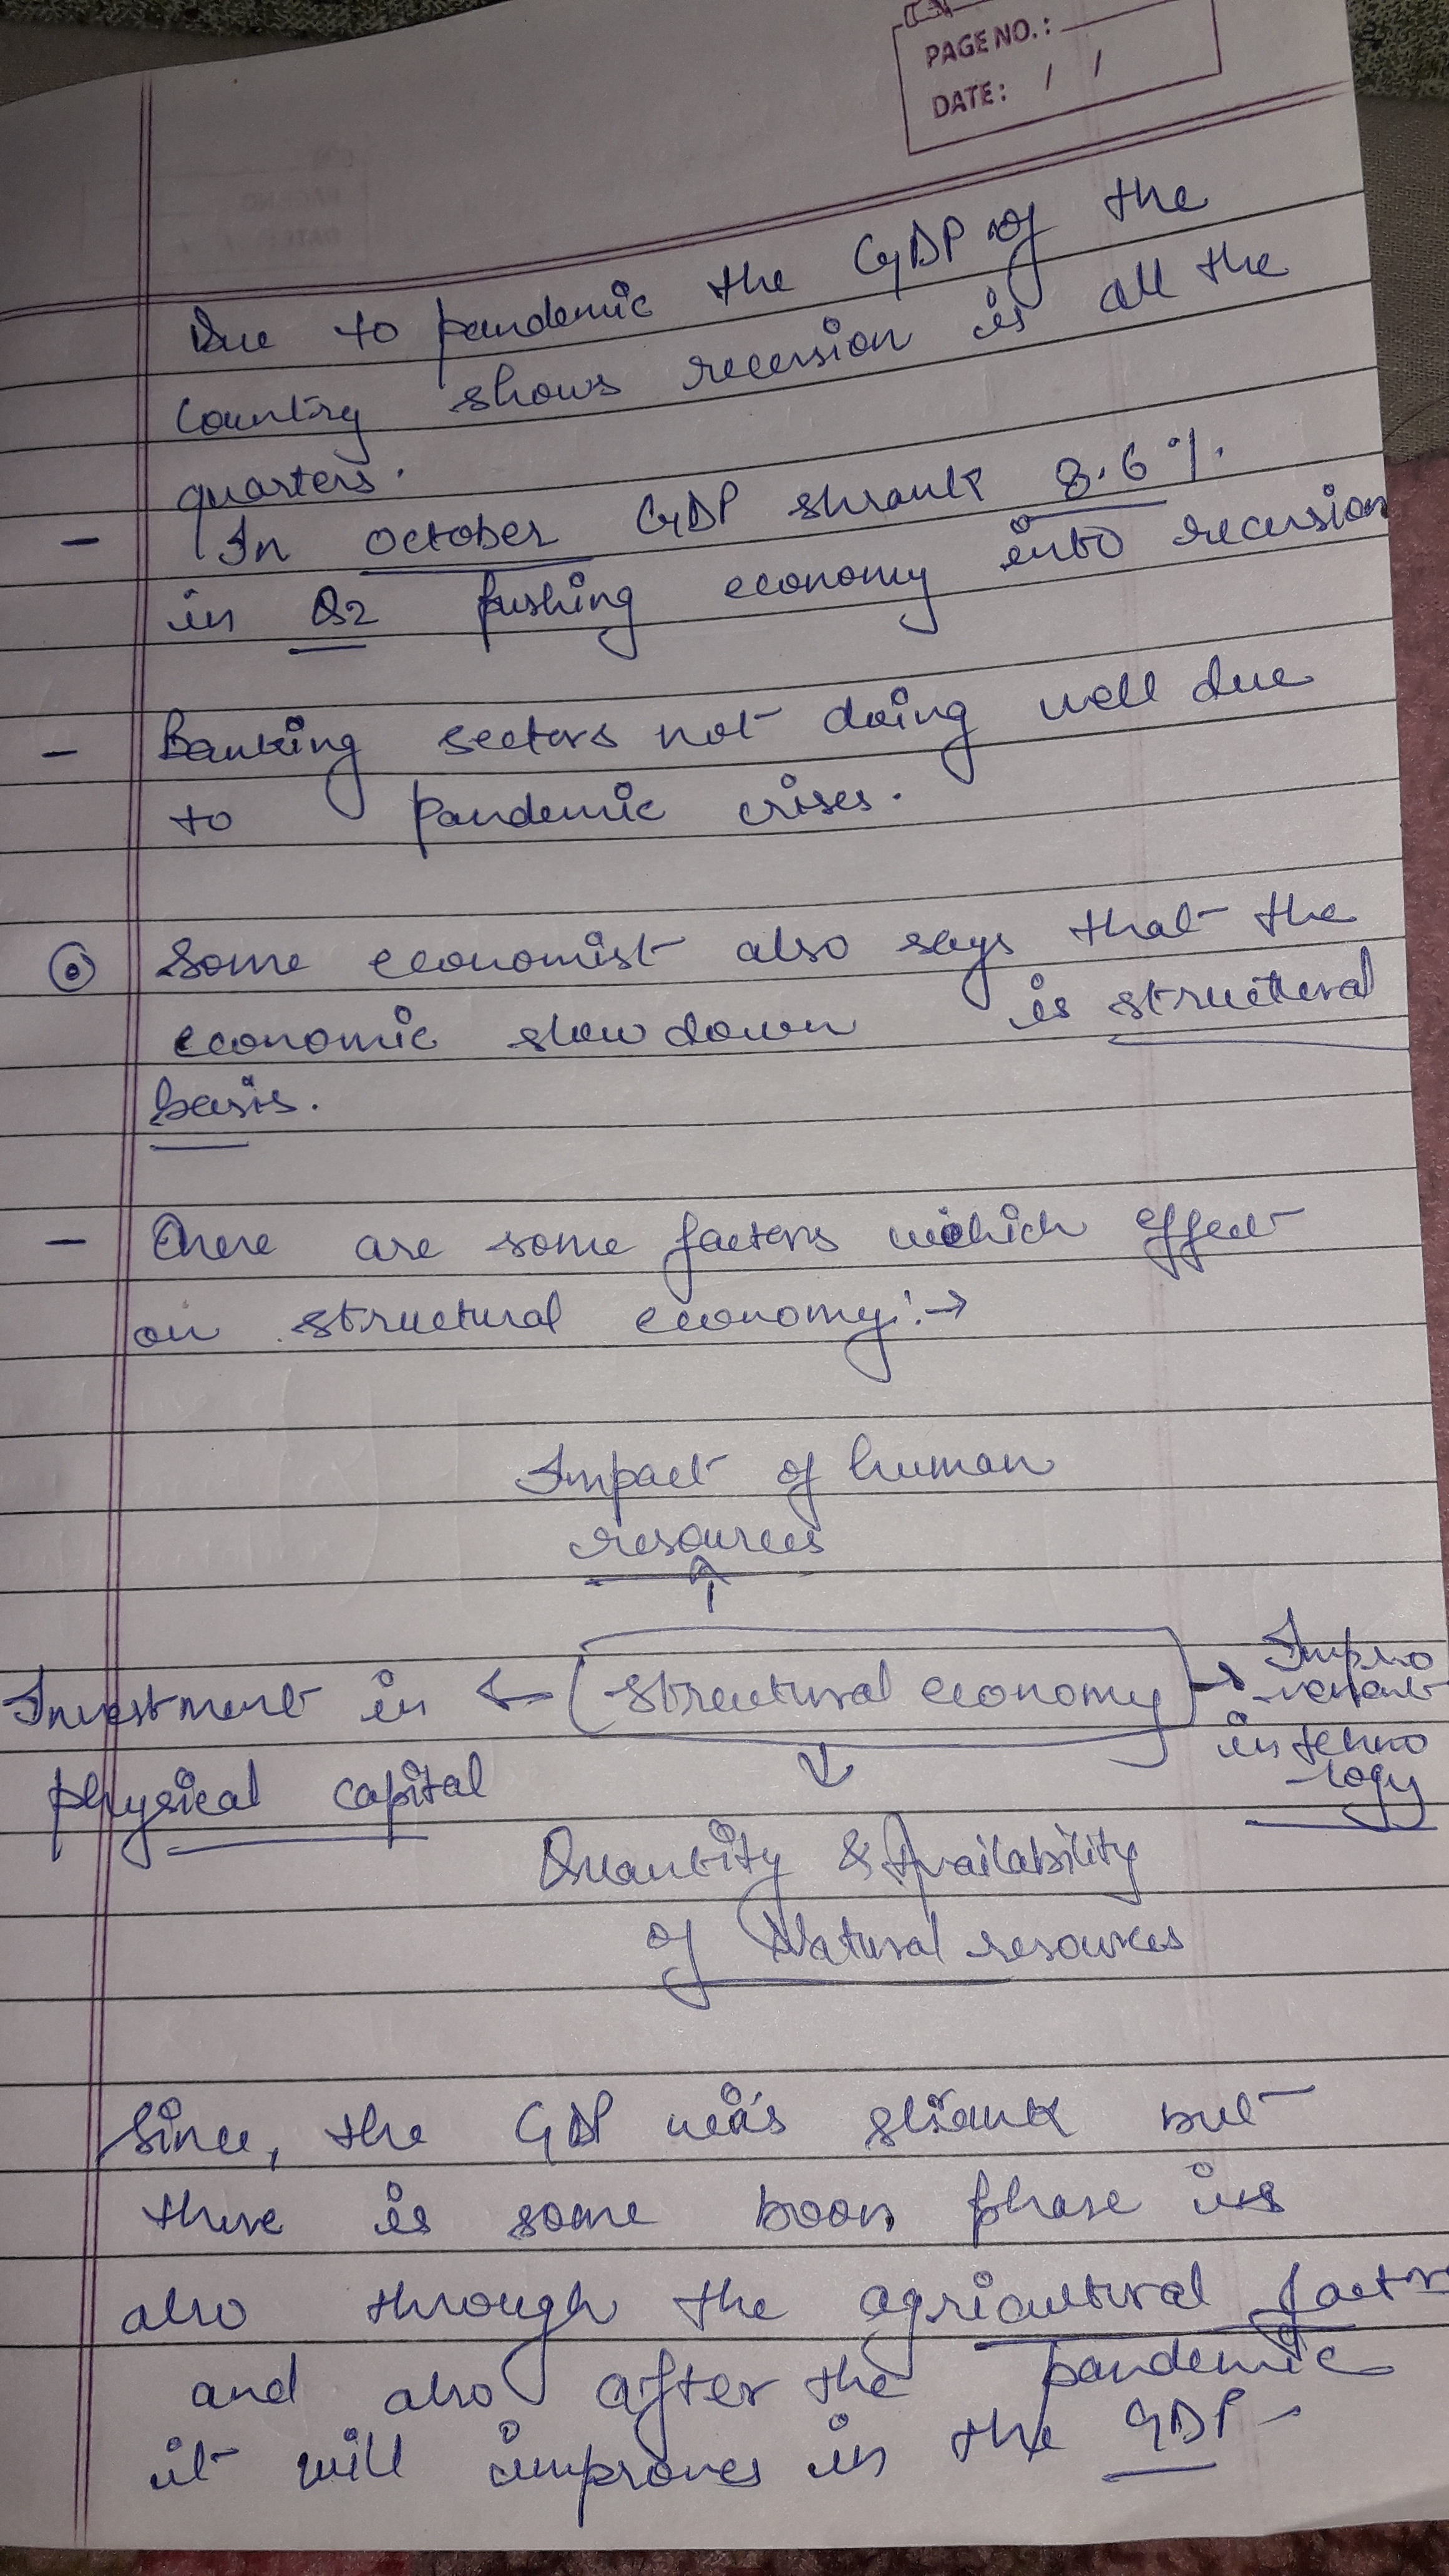 PAGE NO.:
DATE: / /
Due to pandemic the GDP of the
Country shows recession is all the
quarters.
- In October GDP shrank 8.6%
in Q2 pushing economy into recession
- Banking sectors not doing well due
to pandemic crises.
Some economist also says that the
economic slow down is structural
basis.
- There are some factors which effect
on structural economy:→
Impact of human
resources
↑
Investment in ← Structural economy → Impro
physical capital -vement
in techno
-logy
↓
Quantity & Availability
of Natural resources
Since, the GDP was shrank but
there is some boon phase
also through the agricultural factor
and also after the pandemic
it will improves in the GDP